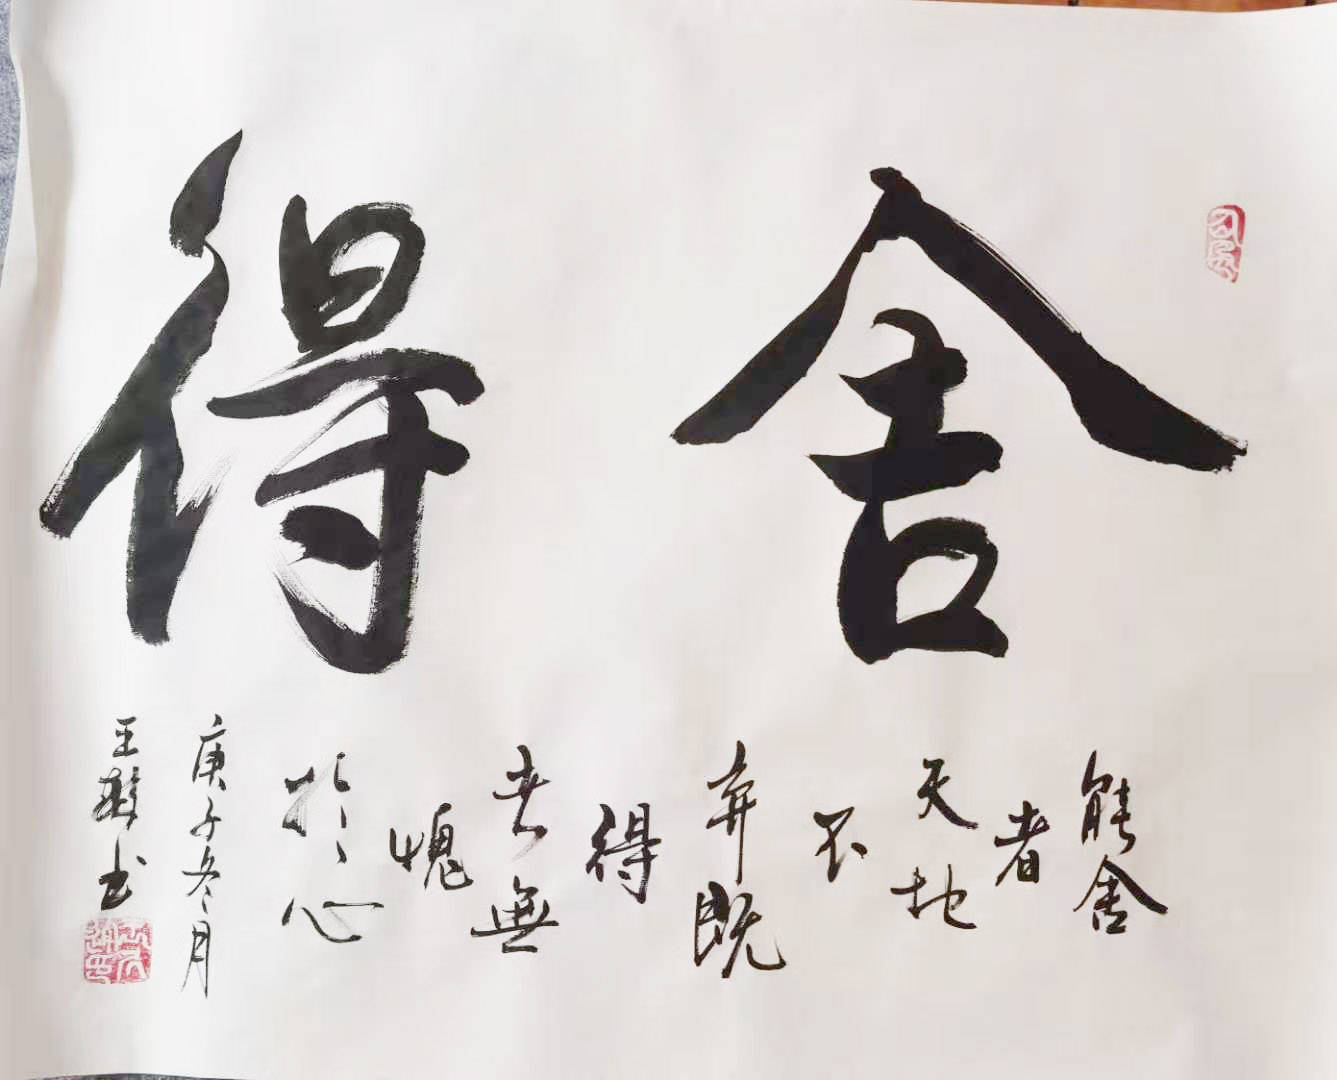 舍得
能舍
者
天地
不
弃既
得
者無
愧
於心
庚子冬月
王
书